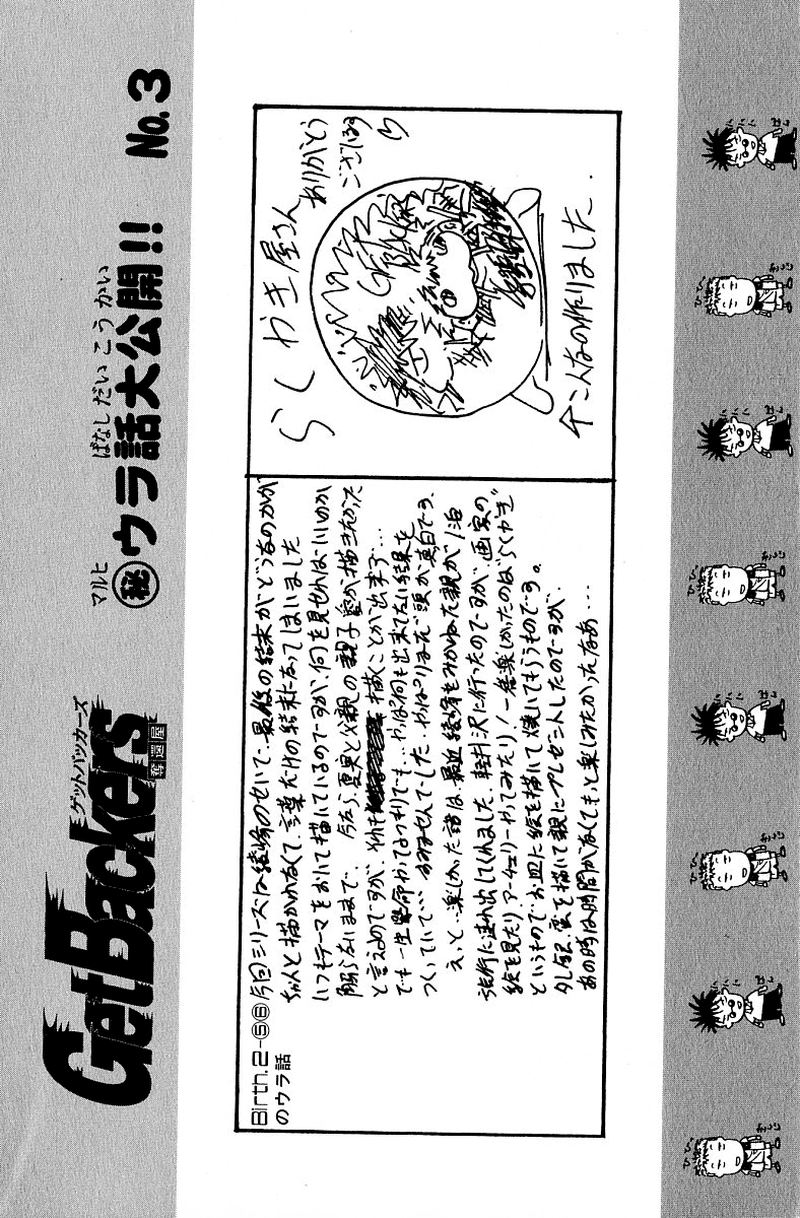 GetBackers
ゲットバッカーズ
奪還屋
マルヒ ばなし だい こう かい
㊙ウラ話大公開!! No.3
Birth.2-⑥⑥
のウラ話
今回シリーズは綾峰のせいで、最後の結末がどうなのかが
ちゃんと描かれなくて、言葉だけの結末になってしまいました
いつもテーマをおいて描いているのですが、何を見せれば、いいのか
解らないままで、今なら夏実と父親の親子愛が描きたかった
と言えるのですが、描くことが出来ず…
でも一生懸命やったつもりでも…やっぱ何も出来てない結果を
つくっていて…すみませんでした。やっぱりまだ頭が真白です。
えっと…楽しかった話は、最近綾峰をみかねた親が1泊
旅行に連れ出してくれました。軽井沢に行ったのですが、画家の
絵を見たり、アーチェリーやってみたり!一番楽しかったのはらくがき
というもので、お皿に絵を描いて焼いてもらうものです。
少し銀次を描いて親にプレゼントしたのですが、
あの時は時間がなくてもっと楽しみたかったなあ…
らくがき屋さん
ありがとう
ございます
こんなの作りました.